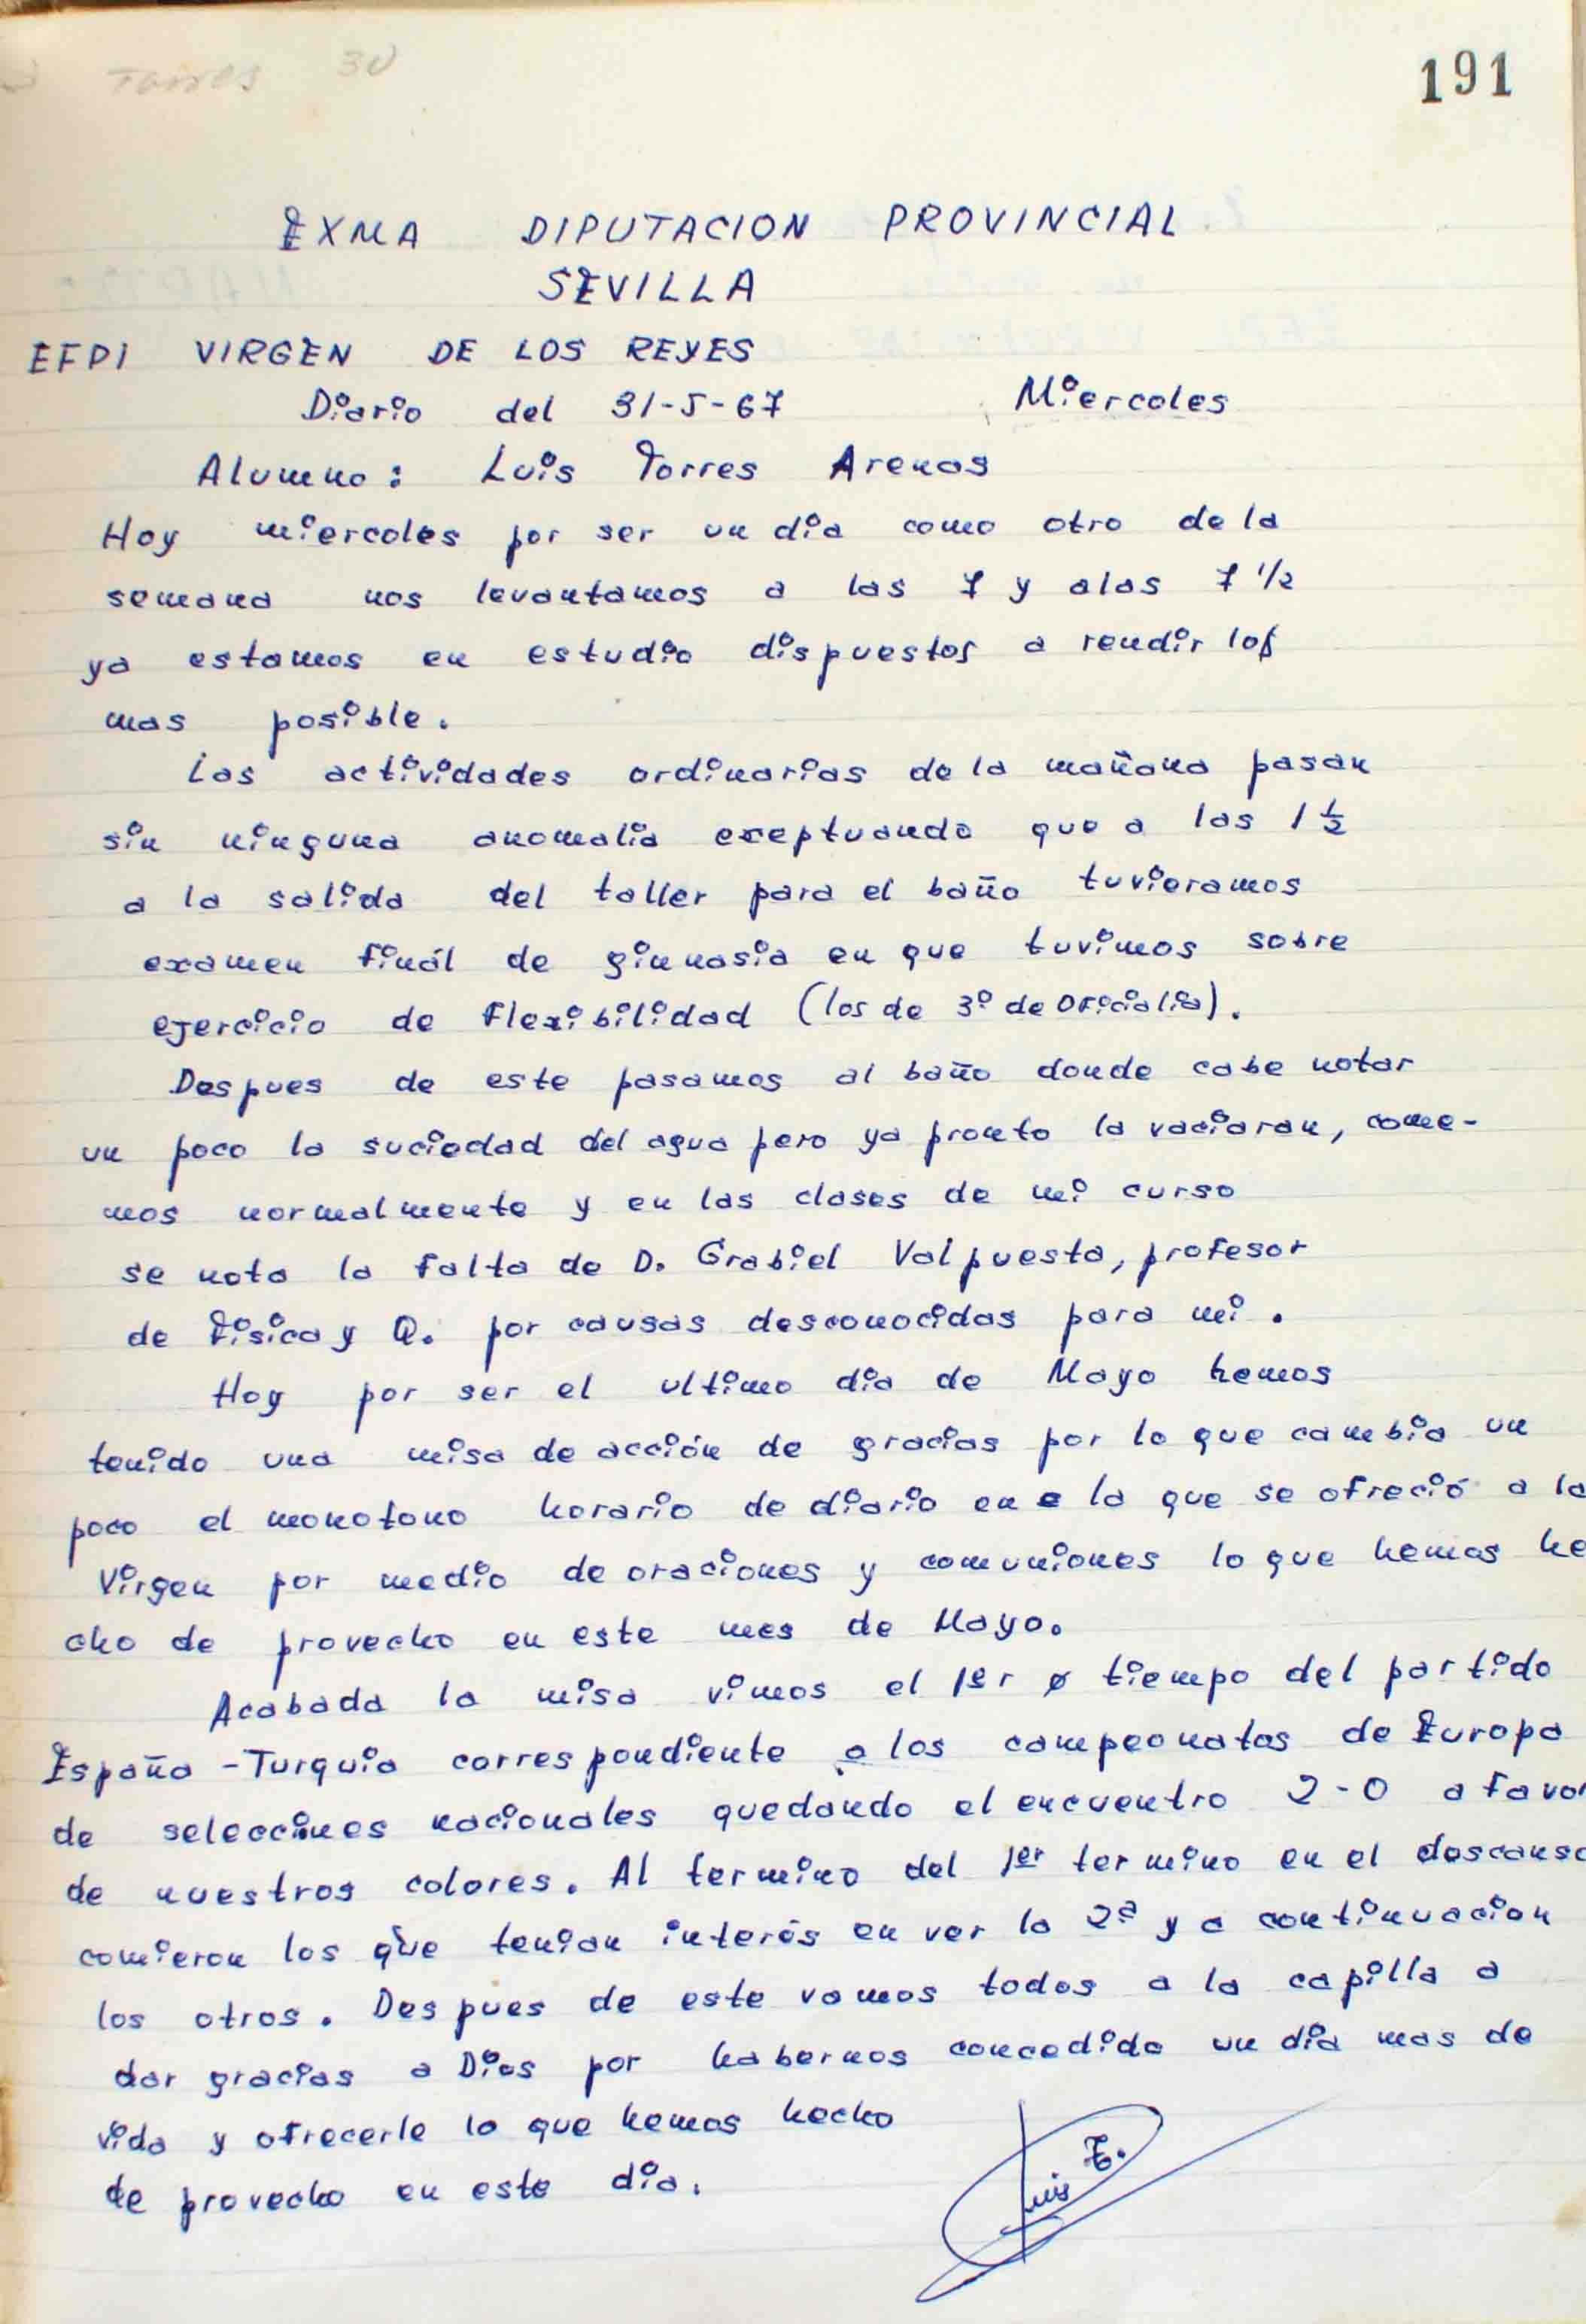 Torres 30
191
EXMA DIPUTACION PROVINCIAL
SEVILLA
EFPI VIRGEN DE LOS REYES
Diario del 31-5-67 Miercoles
Alumno: Luis Torres Arenas
Hoy miercoles por ser un dia como otro de la
semana nos levantamos a las 7 y alas 7 1/2
ya estamos en estudio dispuestos a rendir los
mas posible.
Las actividades ordinarias de la mañana pasan
sin ninguna anomalia exeptuando que a las 1 1/2
a la salida del taller para el baño tuvieramos
examen finál de gimnasia en que tuvimos sobre
ejercicio de flexibilidad (los de 3º de oficialia).
Despues de este pasamos al baño donde cabe notar
un poco la suciedad del agua pero ya pronto la vaciaran, come-
mos normalmente y en las clases de mi curso
se nota la falta de D. Grabiel Valpuesta, profesor
de fisica y Q. por causas desconocidas para mi.
Hoy por ser el ultimo dia de Mayo hemos
tenido una misa de acción de gracias por lo que cambia un
poco el monotono horario de diario en e la que se ofreció a la
Virgen por medio de oraciones y comuniones lo que hemos he
cho de provecho en este mes de Mayo.
Acabada la misa vimos el 1er tiempo del partido
España - Turquia correspondiente a los campeonatos de Europa
de seleccines nacionales quedando el encuentro 2-0 a favor
de nuestros colores. Al termino del 1er termino en el descanso
comieron los que tenian interés en ver la 2ª y a continuacion
los otros. Despues de este vamos todos a la capilla a
dar gracias a Dios por habernos concedido un dia mas de
vida y ofrecerle lo que hemos hecho
de provecho en este dia.
Luis T.